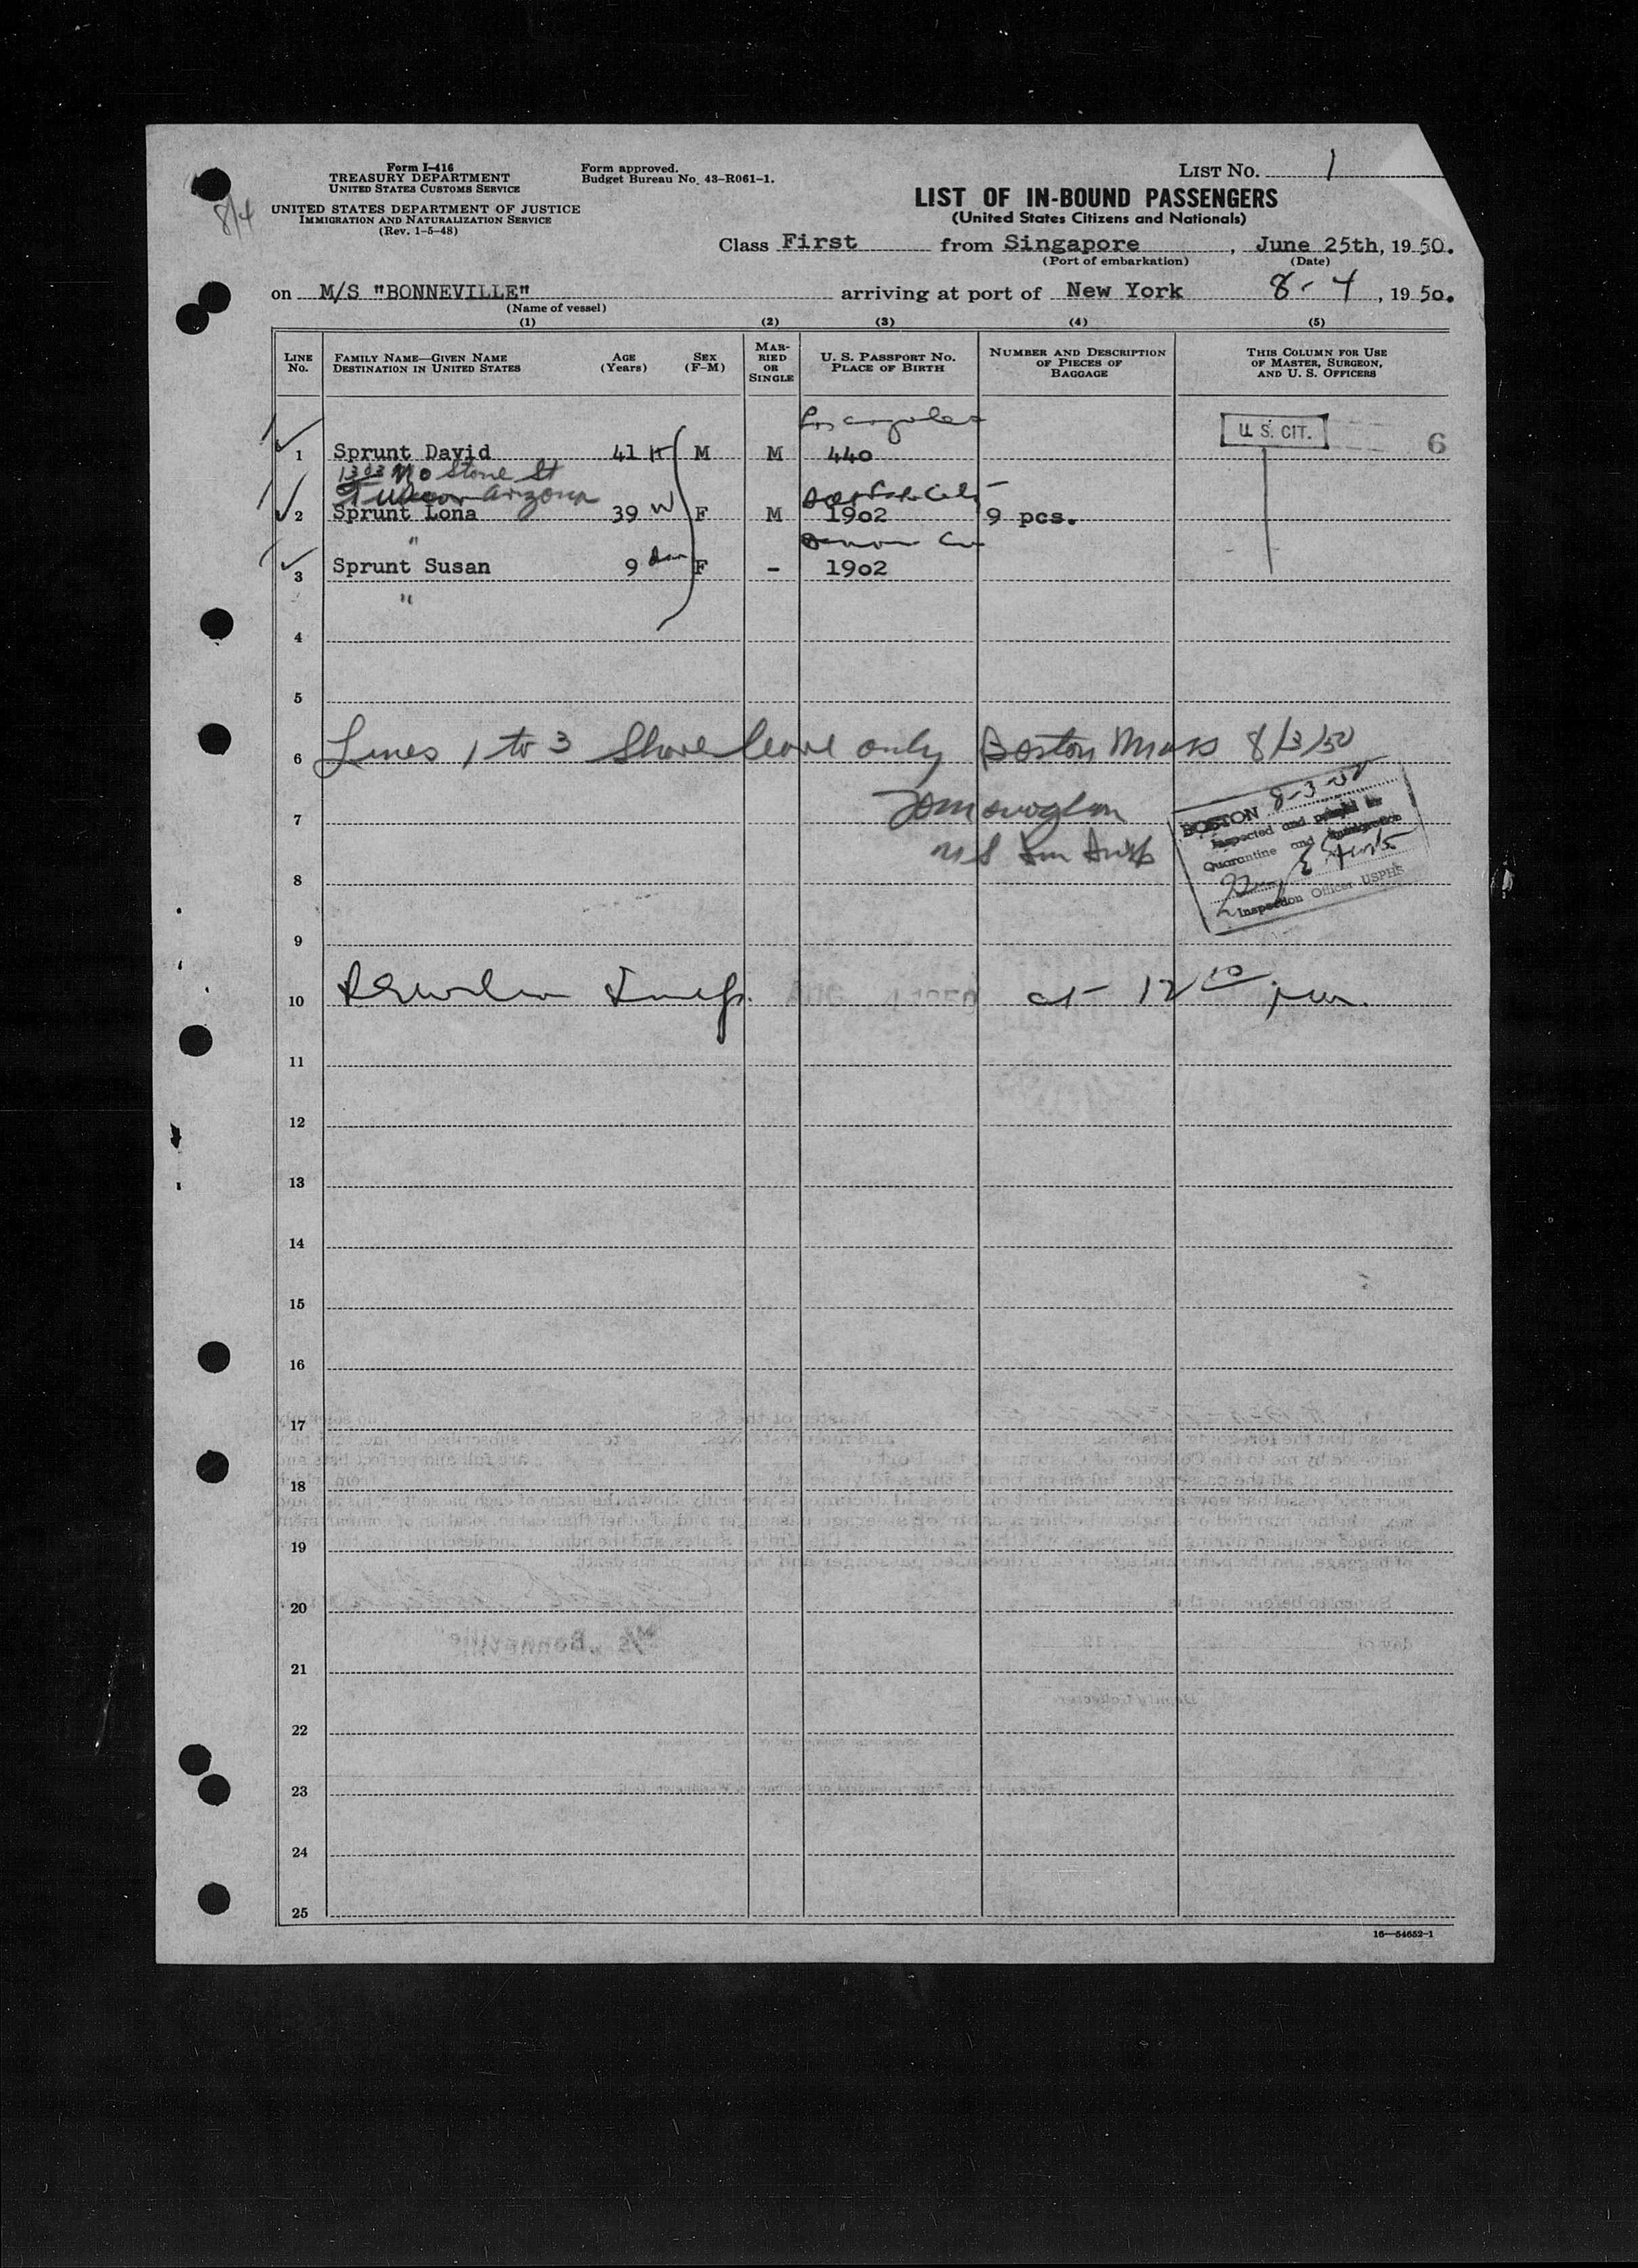 Form I-416
TREASURY DEPARTMENT
UNITED STATES CUSTOMS SERVICE
UNITED STATES DEPARTMENT OF JUSTICE
IMMIGRATION AND NATURALIZATION SERVICE
(Rev. 1-5-48)
8/4
Form approved.
Budget Bureau No. 43-R061-1.
LIST NO. 1
LIST OF IN-BOUND PASSENGERS
(United States Citizens and Nationals)
Class First from Singapore, June 25th, 1950.
(Port of embarkation) (Date)
on M/S "BONNEVILLE" arriving at port of New York 8-4, 1950.
(Name of vessel)
(1) (2) (3) (4) (5)
LINE No.
FAMILY NAME—GIVEN NAME
DESTINATION IN UNITED STATES
AGE (Years)
SEX (F-M)
MARRIED OR SINGLE
U. S. PASSPORT No.
PLACE OF BIRTH
NUMBER AND DESCRIPTION OF PIECES OF BAGGAGE
THIS COLUMN FOR USE OF MASTER, SURGEON, AND U. S. OFFICERS
Los Angeles
U. S. CIT.
1 Sprunt David 41 H M M 440 6
1303 No Stone St
Tucson Arizona
2 Sprunt Lona 39 W F M 1902 9 pcs.
"
3 Sprunt Susan 9 dau F - 1902
"
4
5
6 Lines 1 to 3 Shore leave only Boston Mass 8/3/50
7
8
BOSTON 8-3-50
Inspected and
Quarantine and Immigration
Inspection Officer USPHS
9
10 Insp. AUG 4 1950 at 12 10 pm.
11
12
13
14
15
16
17
18
19
20
M/S "Bonneville"
21
Deputy Collector
22
23
24
25
16—54652-1